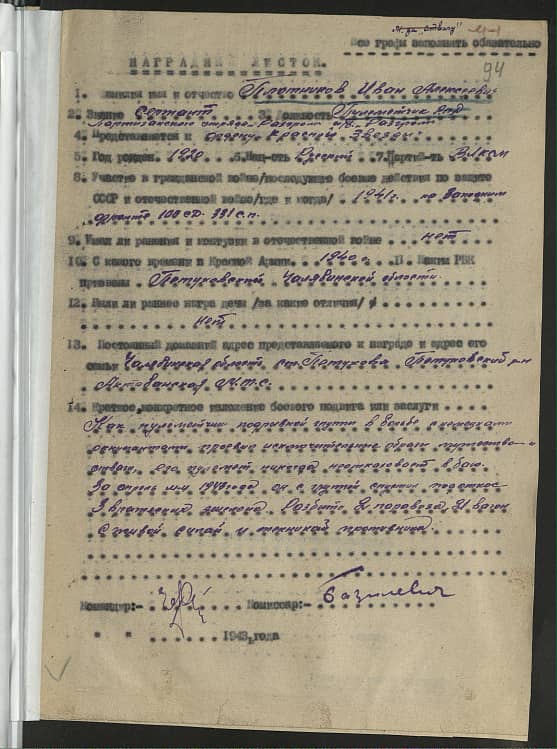 м. да "отвагу"
Все графы заполнять обязательно
94
НАГРАДНОЙ ЛИСТОК.
1. Фамилия имя и отчество Плотников Иван Алексеевич
2. Звание Сержант 3. Должность Пулеметчик
Партизанского отряда
4. Представляется к Ордену Красной Звезды
5. Год рожден. 1920 6. Нац-ть Русский 7. Партий-ть ВЛКСМ
8. Участие в гражданской войне/последующие боевые действия по защите
СССР и отечественной войне/где и когда/ 1941 г. на Западном
фронте 100 сд. 331 с.п.
9. Имел ли ранения и контузии в отечественной войне нет
10. С какого времени в Красной Армии. 1940 г. 11 Каким РВК
призван Петуховский Челябинской области
12. Были ли раннее награ дечн /за какие отличия/
нет
13. Постоянный домашний адрес представляемого к награде и адрес его
семьи Челябинская область ст. Петухова Петуховский р-н
М.Т.С.
14. Краткое, конкретное изложение боевого подвига или заслуги
Как пулеметчик подрывной группы в борьбе с немецкими
оккупантами проявил исключительные образцы мужества и
отваги. Его пулемет никогда не отказывал в бою.
За апрель м-ц 1943 года он с группой спустил под откос
3 вражеских эшелона. Разбито 2 паровоза, 21 вагон
с живой силой и техникой противника.
Командир:- Комиссар:- Базилевич
" " 1943 года